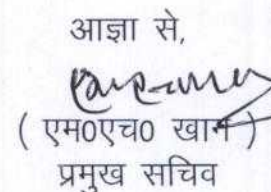 आज्ञा से,
( एम0एच0 खान )
प्रमुख सचिव